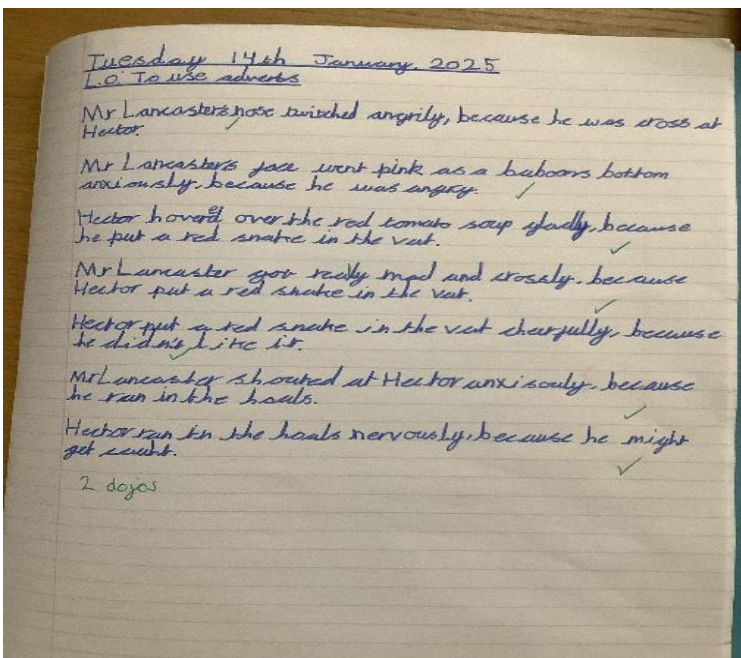 Tuesday 14th January, 2025
L.O. To use adverbs
Mr Lancasters nose twitched angrily, because he was cross at
Hector.
Mr Lancasters face went pink as a baboons bottom
anxiously, because he was angry.
Hector hovered over the red tomato soup gladly, because
he put a red snake in the vat.
Mr Lancaster got really mad and crossly, because
Hector put a red snake in the vat.
Hector put a red snake in the vat chearfully, because
he didn't like it.
Mr Lancaster shouted at Hector anxisouly, because
he ran in the hoals.
Hector ran in the hoals nervously, because he might
get caught.
2 dojos